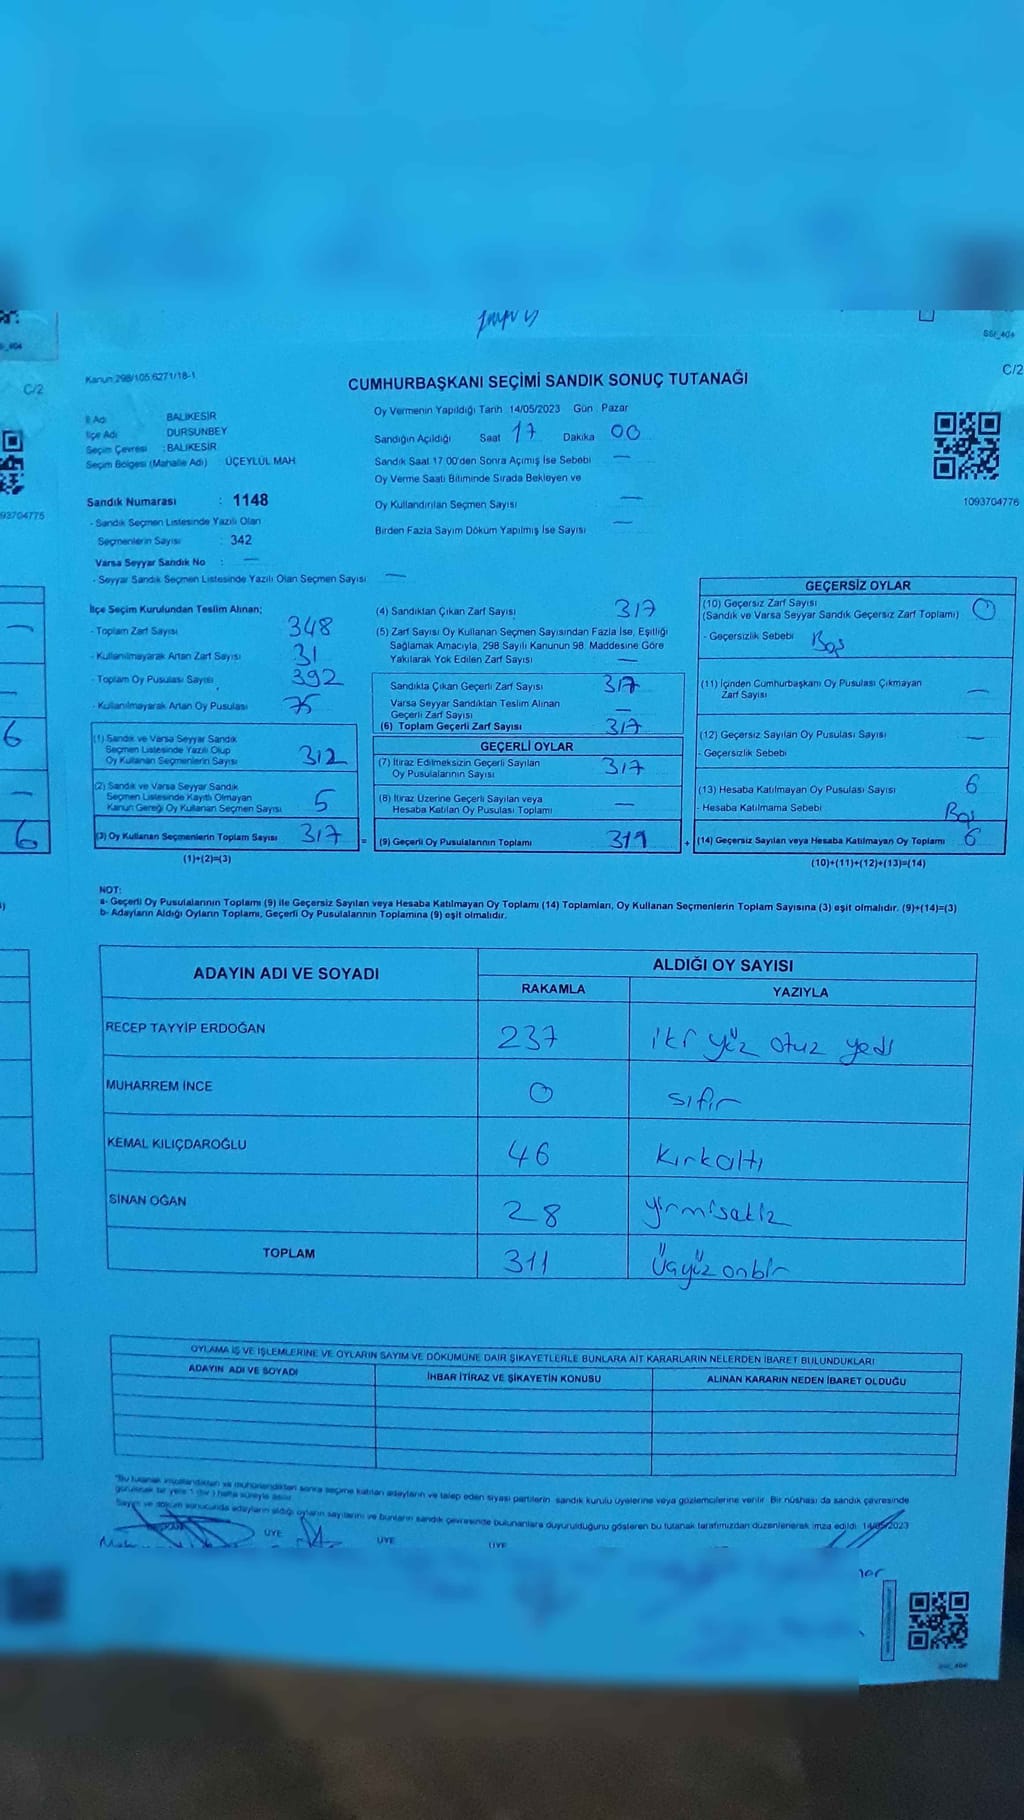 SSI_404
C/2
C/2
Kanun 298/105 6271/18-1
CUMHURBAŞKANI SEÇİMİ SANDIK SONUÇ TUTANAĞI
İl Adı BALIKESİR
İlçe Adı DURSUNBEY
Seçim Çevresi : BALIKESİR
Seçim Bölgesi (Mahalle Adı) ÜÇEYLÜL MAH
Oy Vermenin Yapıldığı Tarih 14/05/2023 Gün : Pazar
Sandığın Açıldığı Saat 17 Dakika 00
Sandık Saat 17:00'den Sonra Açımış İse Sebebi —
Oy Verme Saati Bitiminde Sırada Bekleyen ve
Oy Kullandırılan Seçmen Sayısı —
Birden Fazla Sayım Döküm Yapılmış İse Sayısı —
1093704776
93704775
Sandık Numarası : 1148
- Sandık Seçmen Listesinde Yazılı Olan
Seçmenlerin Sayısı : 342
Varsa Seyyar Sandık No : —
- Seyyar Sandık Seçmen Listesinde Yazılı Olan Seçmen Sayısı —
İlçe Seçim Kurulundan Teslim Alınan;
- Toplam Zarf Sayısı 348
- Kullanılmayarak Artan Zarf Sayısı 31
- Toplam Oy Pusulası Sayısı 392
- Kullanılmayarak Artan Oy Pusulası 75
(1) Sandık ve Varsa Seyyar Sandık
Seçmen Listesinde Yazılı Olup
Oy Kullanan Seçmenlerin Sayısı 312
(2) Sandık ve Varsa Seyyar Sandık
Seçmen Listesinde Kayıtlı Olmayan
Kanun Gereği Oy Kullanan Seçmen Sayısı 5
(3) Oy Kullanan Seçmenlerin Toplam Sayısı 317 =
(1)+(2)=(3)
(4) Sandıktan Çıkan Zarf Sayısı 317
(5) Zarf Sayısı Oy Kullanan Seçmen Sayısından Fazla İse, Eşitliği
Sağlamak Amacıyla, 298 Sayılı Kanunun 98. Maddesine Göre
Yakılarak Yok Edilen Zarf Sayısı —
Sandıkta Çıkan Geçerli Zarf Sayısı 317
Varsa Seyyar Sandıktan Teslim Alınan
Geçerli Zarf Sayısı —
(6) Toplam Geçerli Zarf Sayısı 317
GEÇERLİ OYLAR
(7) İtiraz Edilmeksizin Geçerli Sayılan
Oy Pusulalarının Sayısı 317
(8) İtiraz Üzerine Geçerli Sayılan veya
Hesaba Katılan Oy Pusulası Toplamı —
(9) Geçerli Oy Pusulalarının Toplamı +
GEÇERSİZ OYLAR
(10) Geçersiz Zarf Sayısı
(Sandık ve Varsa Seyyar Sandık Geçersiz Zarf Toplamı) 0
- Geçersizlik Sebebi Boş
(11) İçinden Cumhurbaşkanı Oy Pusulası Çıkmayan
Zarf Sayısı —
(12) Geçersiz Sayılan Oy Pusulası Sayısı —
- Geçersizlik Sebebi
(13) Hesaba Katılmayan Oy Pusulası Sayısı 6
- Hesaba Katılmama Sebebi Boş
(14) Geçersiz Sayılan veya Hesaba Katılmayan Oy Toplamı 6
(10)+(11)+(12)+(13)=(14)
6
6
NOT:
a- Geçerli Oy Pusulalarının Toplamı (9) ile Geçersiz Sayılan veya Hesaba Katılmayan Oy Toplamı (14) Toplamları, Oy Kullanan Seçmenlerin Toplam Sayısına (3) eşit olmalıdır. (9)+(14)=(3)
b- Adayların Aldığı Oyların Toplamı, Geçerli Oy Pusulalarının Toplamına (9) eşit olmalıdır.
ADAYIN ADI VE SOYADI
ALDIĞI OY SAYISI
RAKAMLA YAZIYLA
RECEP TAYYİP ERDOĞAN 237 iki yüz otuz yedi
MUHARREM İNCE 0 sıfır
KEMAL KILIÇDAROĞLU 46 kırkaltı
SİNAN OĞAN 28 yirmisekiz
TOPLAM 311 Üçyüz onbir
OYLAMA İŞ VE İŞLEMLERİNE VE OYLARIN SAYIM VE DÖKÜMÜNE DAİR ŞİKAYETLERLE BUNLARA AİT KARARLARIN NELERDEN İBARET BULUNDUKLARI
ADAYIN ADI VE SOYADI İHBAR İTİRAZ VE ŞİKAYETİN KONUSU ALINAN KARARIN NEDEN İBARET OLDUĞU
*Bu tutanak imzalandıktan ve mühürlendikten sonra seçime katılan adayların ve talep eden siyasi partilerin sandık kurulu üyelerine veya gözlemcilerine verilir. Bir nüshası da sandık çevresinde
görülecek bir yere 1 (bir) hafta süreyle asılır.
Sayım ve döküm sonucunda adayların aldığı oyların sayılarını ve bunların sandık çevresinde bulunanlara duyurulduğunu gösteren bu tutanak tarafımızdan düzenlenerek imza edildi. 14/05/2023
ÜYE ÜYE ÜYE